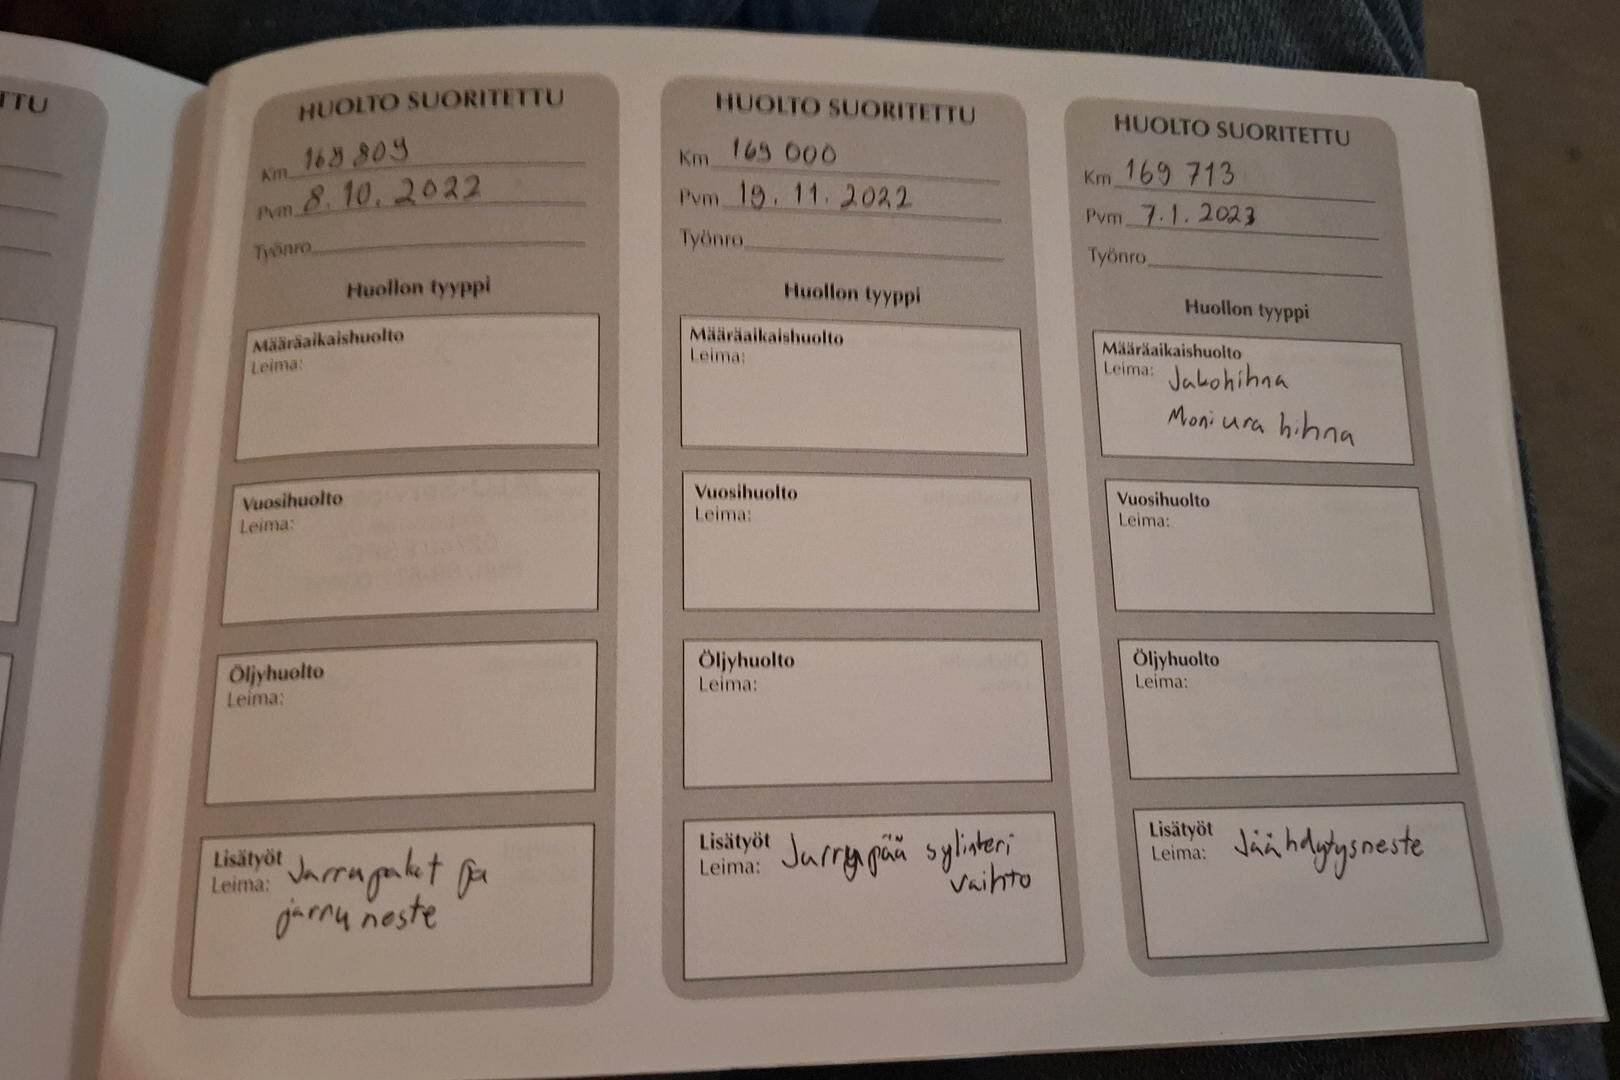 TTU
HUOLTO SUORITETTU
Km 168 809
Pvm 8.10.2022
Työnro
Huollon tyyppi
Määräaikaishuolto
Leima:
Vuosihuolto
Leima:
Öljyhuolto
Leima:
Lisätyöt
Leima: Jarrupalat ja
jarru neste
HUOLTO SUORITETTU
Km 169 000
Pvm 19.11.2022
Työnro
Huollon tyyppi
Määräaikaishuolto
Leima:
Vuosihuolto
Leima:
Öljyhuolto
Leima:
Lisätyöt
Leima: Jarrupää sylinteri
vaihto
HUOLTO SUORITETTU
Km 169 713
Pvm 7.1.2023
Työnro
Huollon tyyppi
Määräaikaishuolto
Leima: Jakohihna
Moniura hihna
Vuosihuolto
Leima:
Öljyhuolto
Leima:
Lisätyöt
Leima: Jäähdytysneste